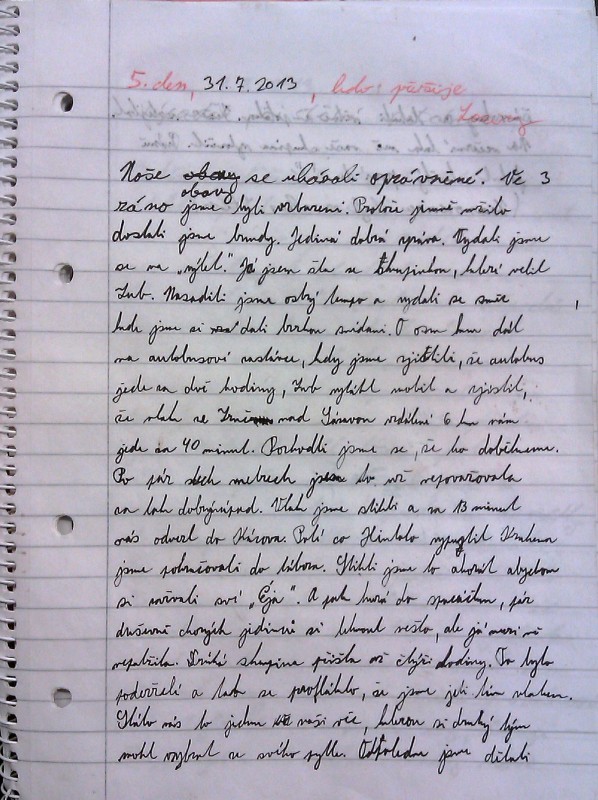 5. den, 31.7.2013, kdo: páráje
Naše obavy se ukázali oprávněné. Ve 3
obavy
ráno jsme byli vzbuzeni. Protože jemně mžilo
dostali jsme bundy. Jediná dobrá zpráva. Vydali jsme
se na „výlet". Já jsem šla se skupinkou, které velil
Zub. Nasadili jsme ostrý tempo a vydali se směr
kde jsme si dali brzkou snídani. O osm km dál
na autobusové zastávce, kdy jsme zjistili, že autobus
jede za dvě hodiny, Zub vytáhl mobil a zjistil,
že vlak ze Zruče nad Sázavou vzdálené 6 km nám
jede za 40 minut. Rozhodli jsme se, že ho doběhneme.
Po pár metrech jsem to už nepovažovala
za tak dobrý nápad. Vlak jsme stihli a za 13 minut
nás odvezl do Kácova. Poté co
jsme pokračovali do tábora. Stihli jsme to akorát abychom
si zařvali své „Éja". A pak hurá do spacáčku, pár
duševně chorých jedinců si šlo, ale já mezi ně
nepatřila. Druhá skupina přišla až čtyři hodiny. To bylo
podezřelé a tak se profláklo, že jsme jeli tím vlakem.
Stálo nás to jednu naši věc, kterou si druhý tým
mohl vybrat ze svého pytle. Odpoledne jsme dělali